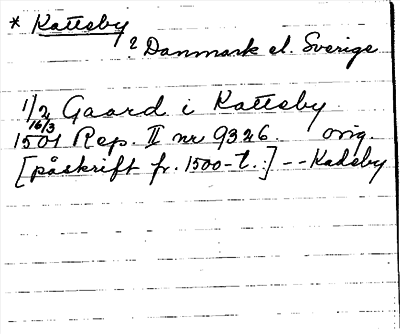 * Kattsby
? Danmark el. Sverige
1/2 Gaard i Kattsby
16/3
1501 Rep. II nr 9326 orig.
[påskrift fr. 1500-t.] -- Kadsby